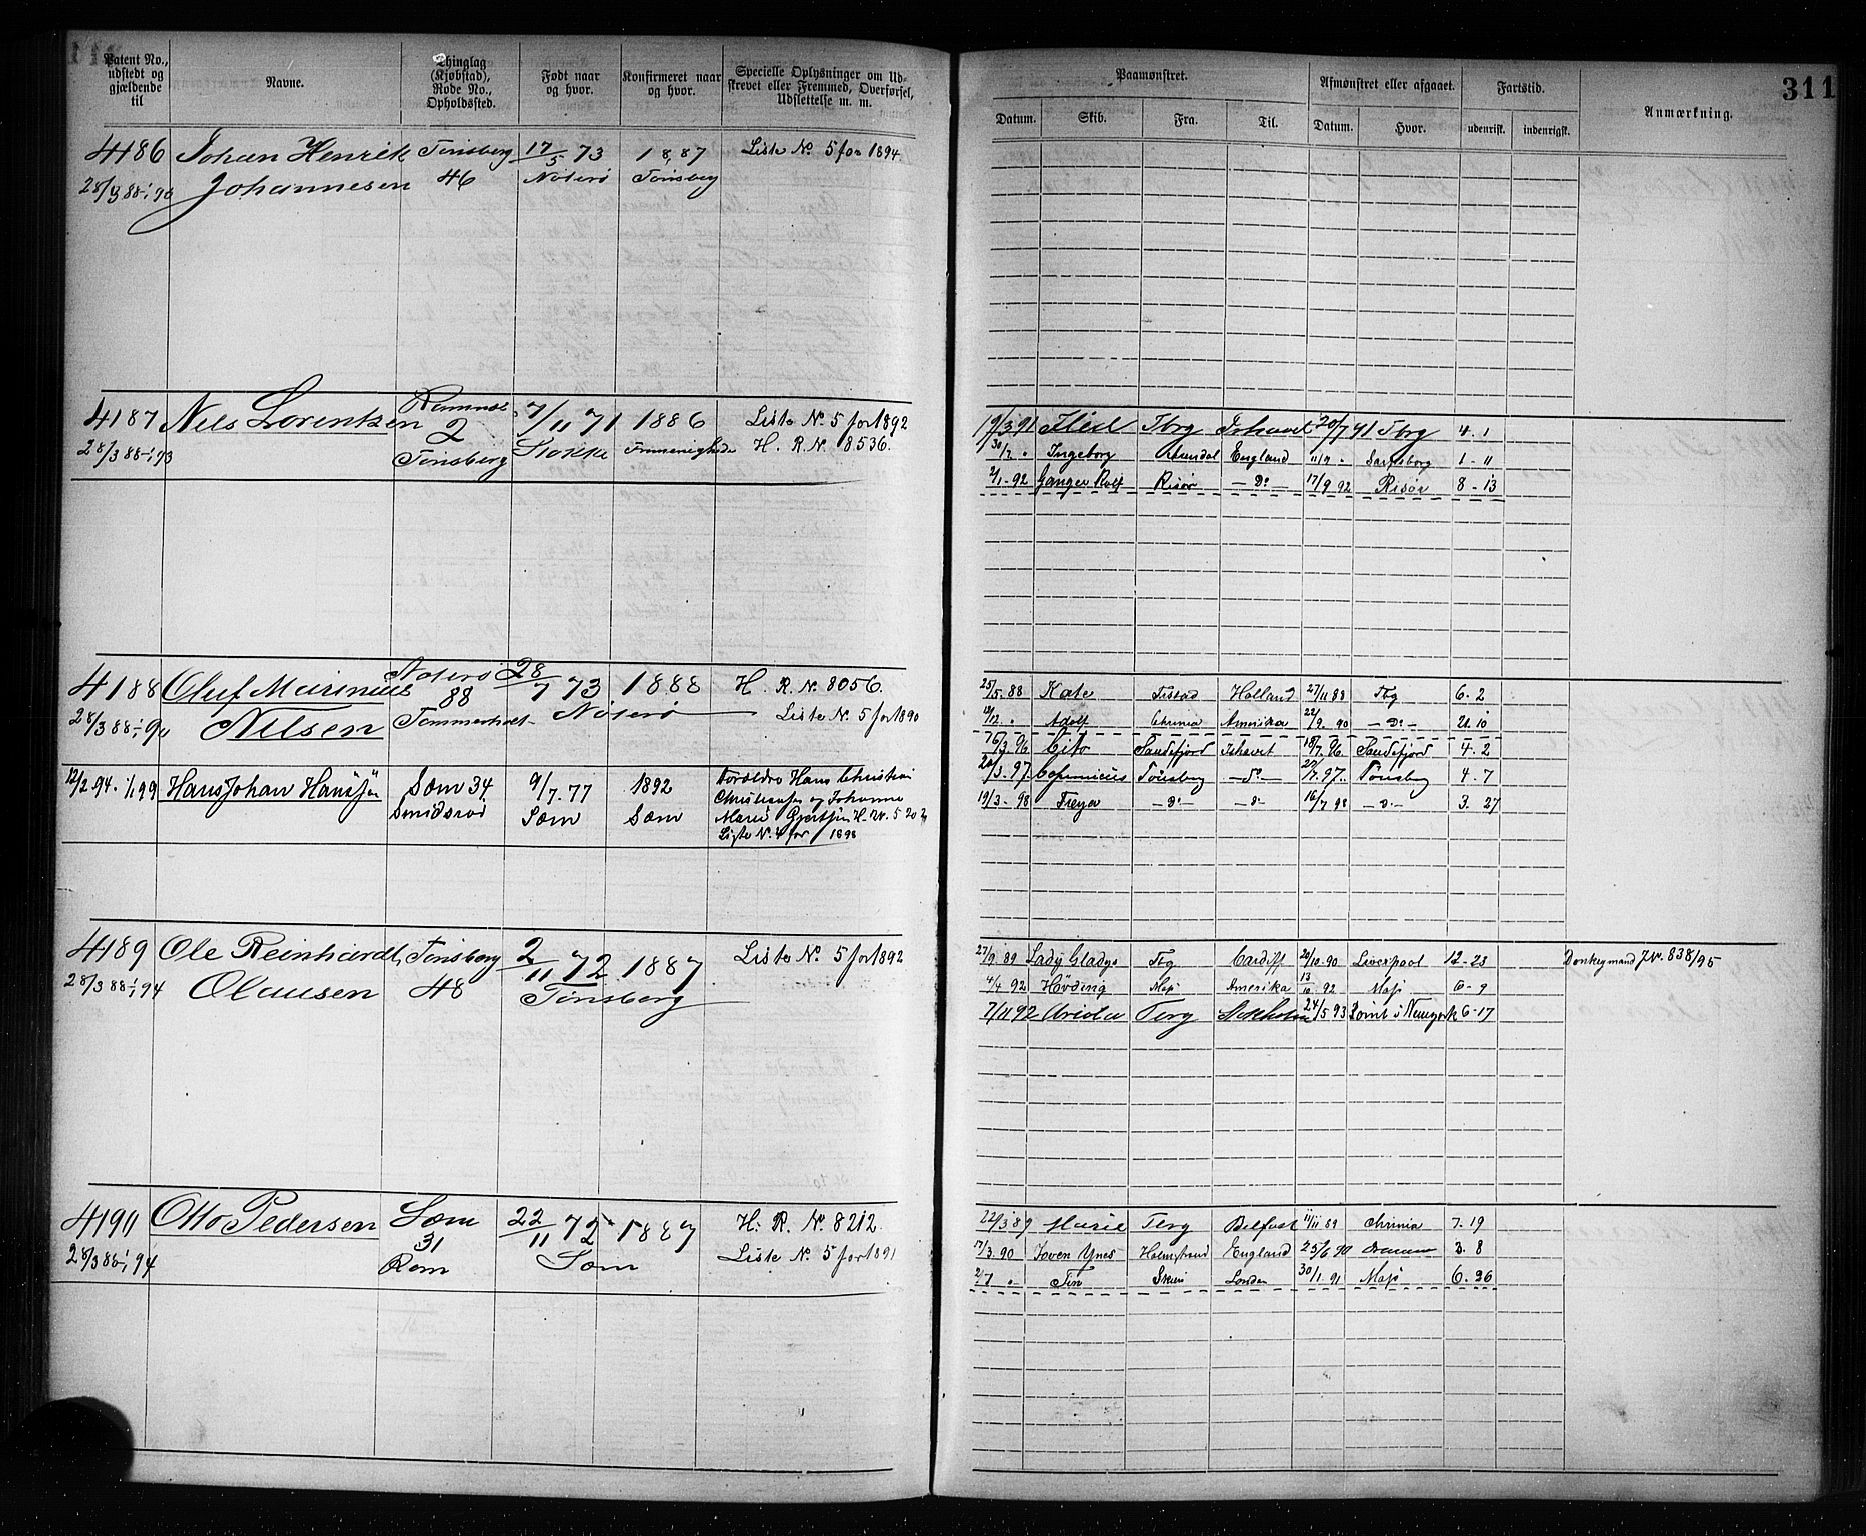 311
Patent No., udstedt og gjældende til
Navne.
Thinglag (Kjøbstad), Rode No., Opholdssted.
Født naar og hvor.
Konfirmeret naar og hvor.
Specielle Oplysninger om Udskrevet eller Fremmed, Overførsel, Udslettelse m. m.
Paamønstret.
Afmønstret eller afgaaet.
Fartstid.
Anmærkning.
Datum. Skib. Fra. Til. Datum. Hvor. udenrigst. indenrigst.
4186 Johan Henrik Tönsberg 17/5 73 1887 Liste No. 5 for 1894
28/3 88-1/1 94 Johannesen 46 Nöterö Tönsberg
4187 Nils Lorentzen Ramnæs 7/11 71 1886 Liste No. 5 for 1892
28/3 88-1/1 93 2 Tönsberg Stokke H. R. N. 8536.
19/3 91 Tbrg Ishavet 20/7 91 Tbrg 4. 1
30/7 " Ingeborg Arendal England 11/9 - Sarpsborg 1 - 11
2/1-92 Ganger Rolf Risör - Do - 17/9 92 Risör 8 - 13
4188 Oluf Marinius Nöterö 28/7 73 1888 H. R. N. 8056.
28/3 88-1/1 94 Nilsen 88 Nöterö Liste No. 5 for 1890
25/5. 88 Kate Holland 27/11 88 Tbg 6. 2
12/12. " Adolf Chrinia Amerika 22/9. 90 - Do - 21. 10
12/2 94-1/1 99 Hans Johan Hansen Sæm 34 9/7. 77 1892 Foreldre Hans Christian
Smidsrød Sæm Sæm Christensen og Johanne
Marie H. N. 5202
Liste N. 4 for 1898
16/3. 96 Cito Sandefjord Ishavet 18/7. 96 Sandefjord 4. 2
20/3. 97. Copernicus Tönsberg - Do - 27/7. 97. Tönsberg 4. 7
19/3 - 98 Freya - Do - - Do - 16/7 98 - Do - 3. 27
4189 Ole Reinhardt Tönsberg 2/11 72 1887 Liste No. 5 for 1892
28/3 88-1/1 94 Olausen 48 Tönsberg
27/9. 89 Lady Gladys Tbg Cardiff 20/10-90 Liverpool 12-23 Donkeymand J.N. 838/95
4/4 92 Hövding Mój Amerika 13/10 92 Mój 6 - 9
7/11 92 Tbrg 24/5 93 Rømt i Newyork 6-17
4190 Otto Pedersen Sæm 22/11 72 1887 H. R. No. 8212.
28/3 88-1/1 94 31 Sæm Liste No. 5 for 1891
Rom
22/3 89 Marie Tbrg Belfast 11/11 89 Chrinia 7. 19
17/3. 90 Holmstrand England 25/6 90 Drammen 3. 8
2/7 " Skien London 30/1. 91 Mój 6. 26